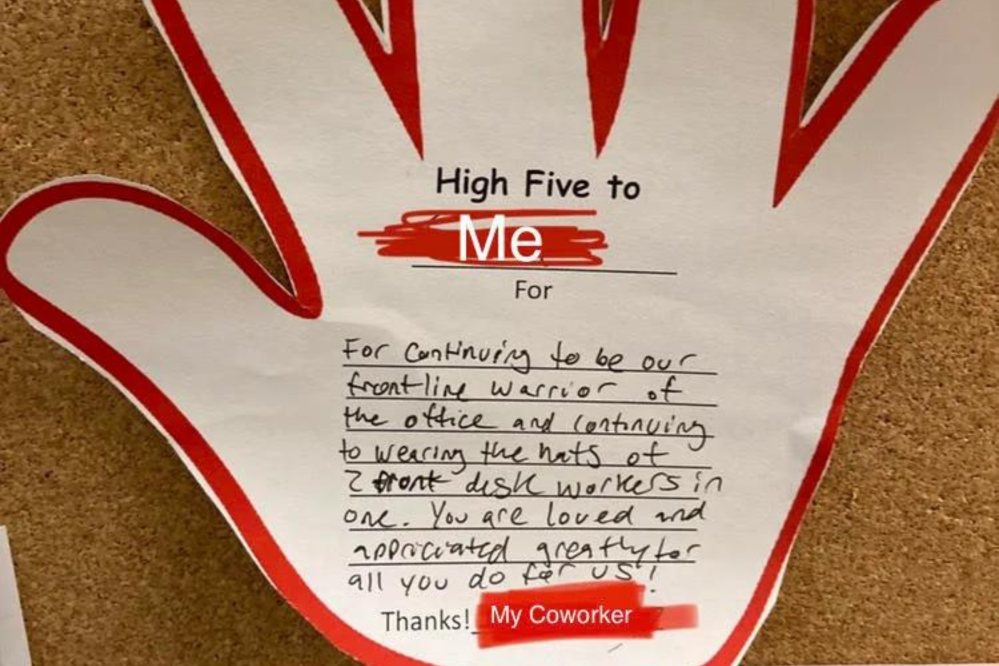 High Five to
Me
For
For continuing to be our
frontline warrior of
the office and continuing
to wearing the hats of
2 front desk workers in
one. You are loved and
appriciated greatly for
all you do for us!
Thanks! My Coworker